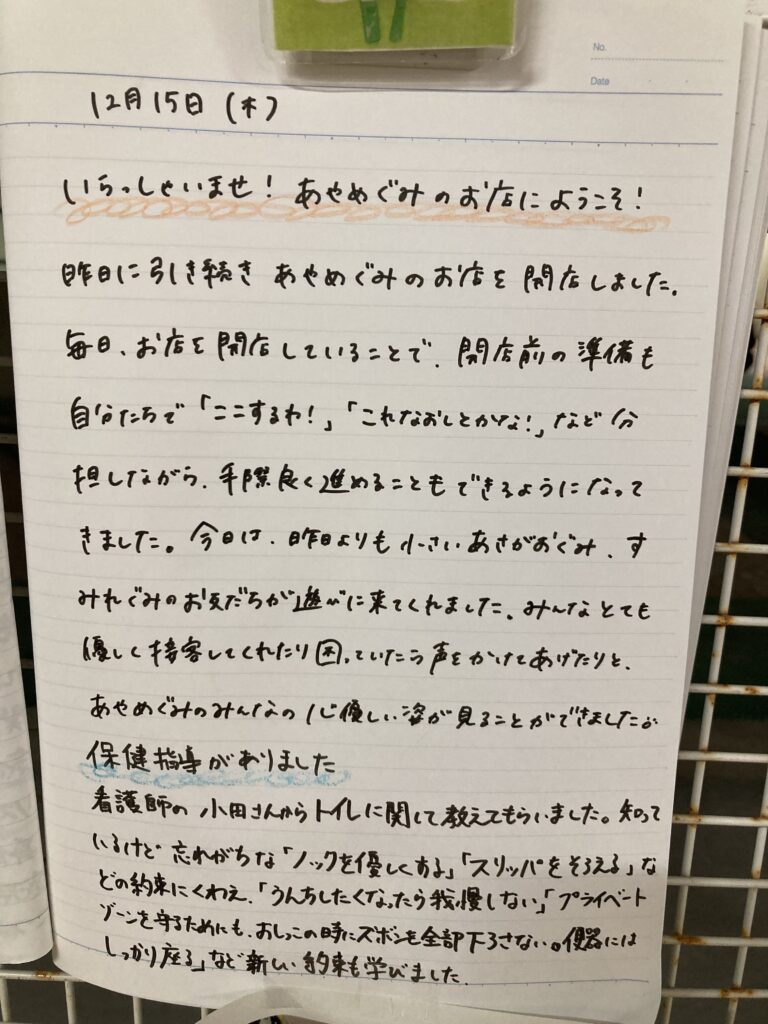 No.
Date
12月15日(木)
いらっしゃいませ！ あやめぐみのお店にようこそ！
昨日に引き続き あやめぐみのお店を 開店しました。
毎日、お店を開店していることで、開店前の準備も
自分たちで「ここするわ！」「これなおしとかな！」など分
担しながら、手際良く進めることもできるようになって
きました。今日は、昨日よりも小さいあさがおぐみ、す
みれぐみのお友だちが遊びに来てくれました。みんなとても
優しく接客してくれたり困っていたら声をかけてあげたりと、
あやめぐみのみんなの心優しい姿が見ることができました
保健指導がありました
看護師の小田さんからトイレに関して教えてもらいました。知って
いるけど忘れがちな「ノックを優しくする」「スリッパをそろえる」な
どの約束にくわえ、「うんちしたくなったら我慢しない」「プライベート
ゾーンを守るためにも、おしっこの時にズボンを全部下ろさない。便器には
しっかり座る」など新しい約束も学びました。